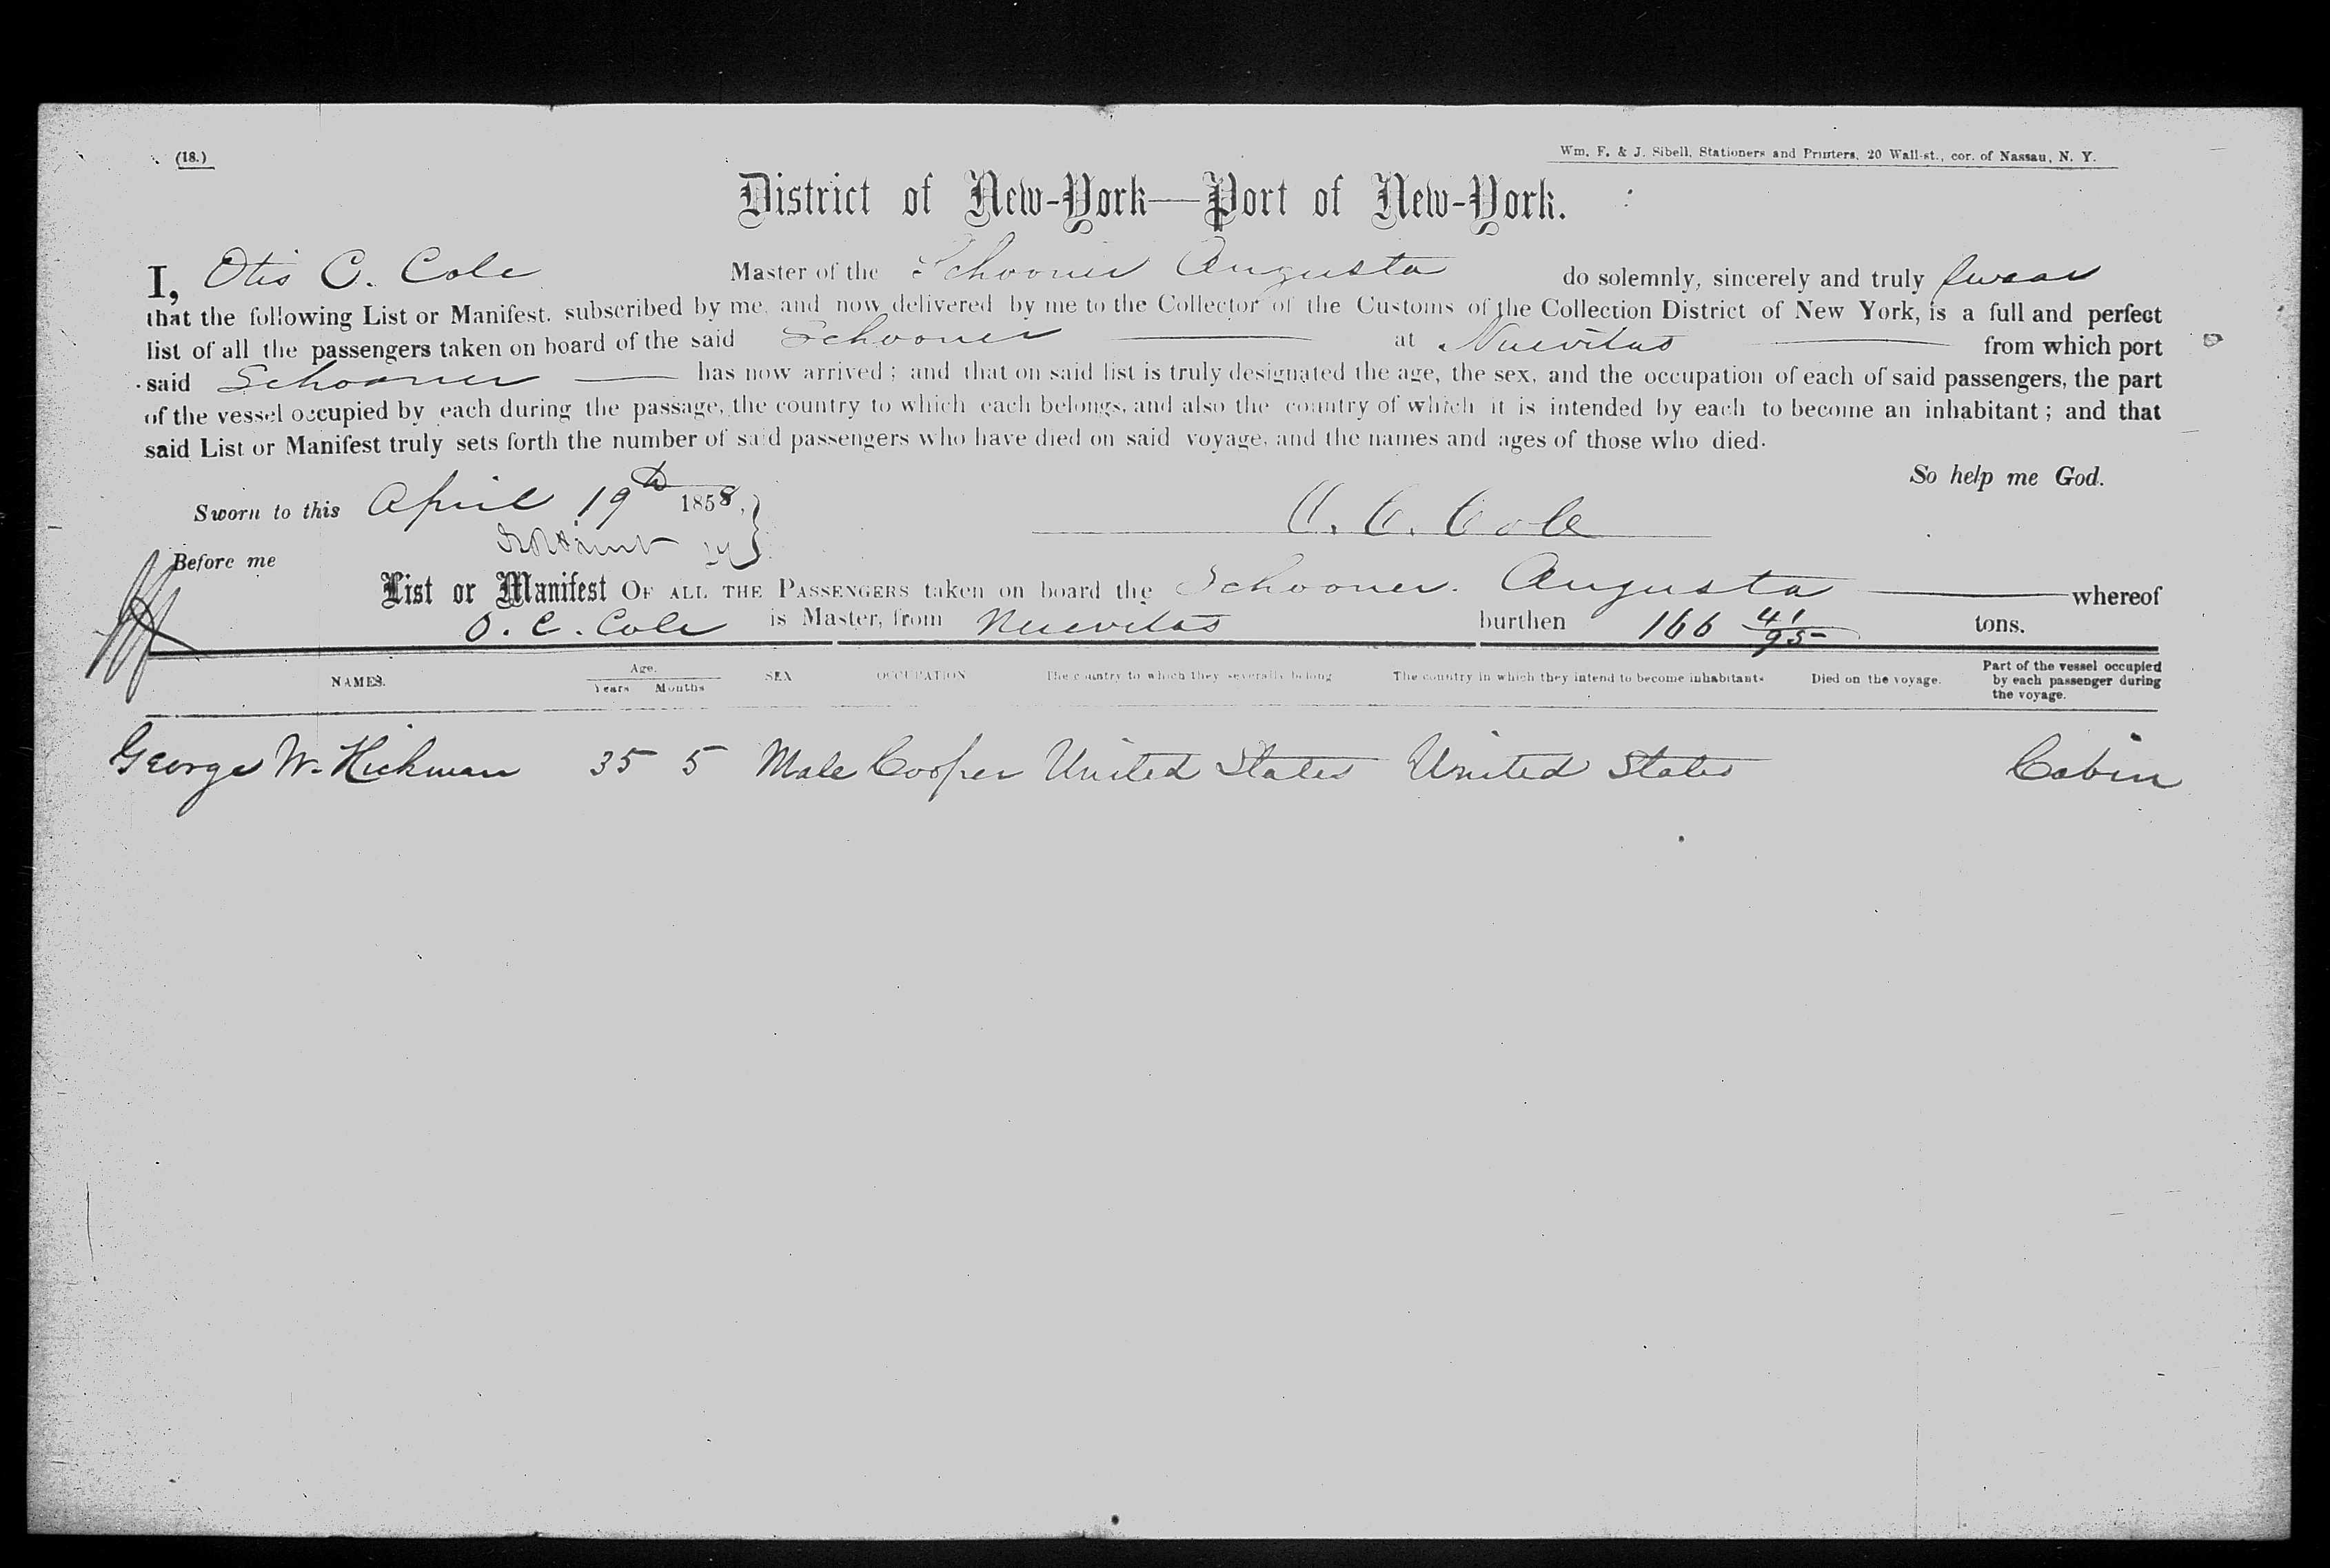 (18.)
Wm. F. & J. Sibell, Stationers and Printers, 20 Wall-st., cor. of Nassau, N. Y.
District of New-York—Port of New-York.
I, Otis C. Cole Master of the Schooner Augusta do solemnly, sincerely and truly swear
that the following List or Manifest. subscribed by me, and now delivered by me to the Collector of the Customs of the Collection District of New York, is a full and perfect
list of all the passengers taken on board of the said Schooner at Nuevitas from which port
said Schooner has now arrived; and that on said list is truly designated the age, the sex, and the occupation of each of said passengers, the part
of the vessel occupied by each during the passage, the country to which each belongs, and also the country of which it is intended by each to become an inhabitant; and that
said List or Manifest truly sets forth the number of said passengers who have died on said voyage, and the names and ages of those who died.
So help me God.
Sworn to this April 19th 1858,
O. C. Cole
Before me
List or Manifest OF ALL THE PASSENGERS taken on board the Schooner. Augusta whereof
O. C. Cole is Master, from Nuevitas burthen 166 41/95 tons.
NAMES. Age. Years Months SEX OCCUPATION The country to which they severally belong The country in which they intend to become inhabitants Died on the voyage. Part of the vessel occupied by each passenger during the voyage.
George W. Hickman 35 5 Male Cooper United States United States Cabin